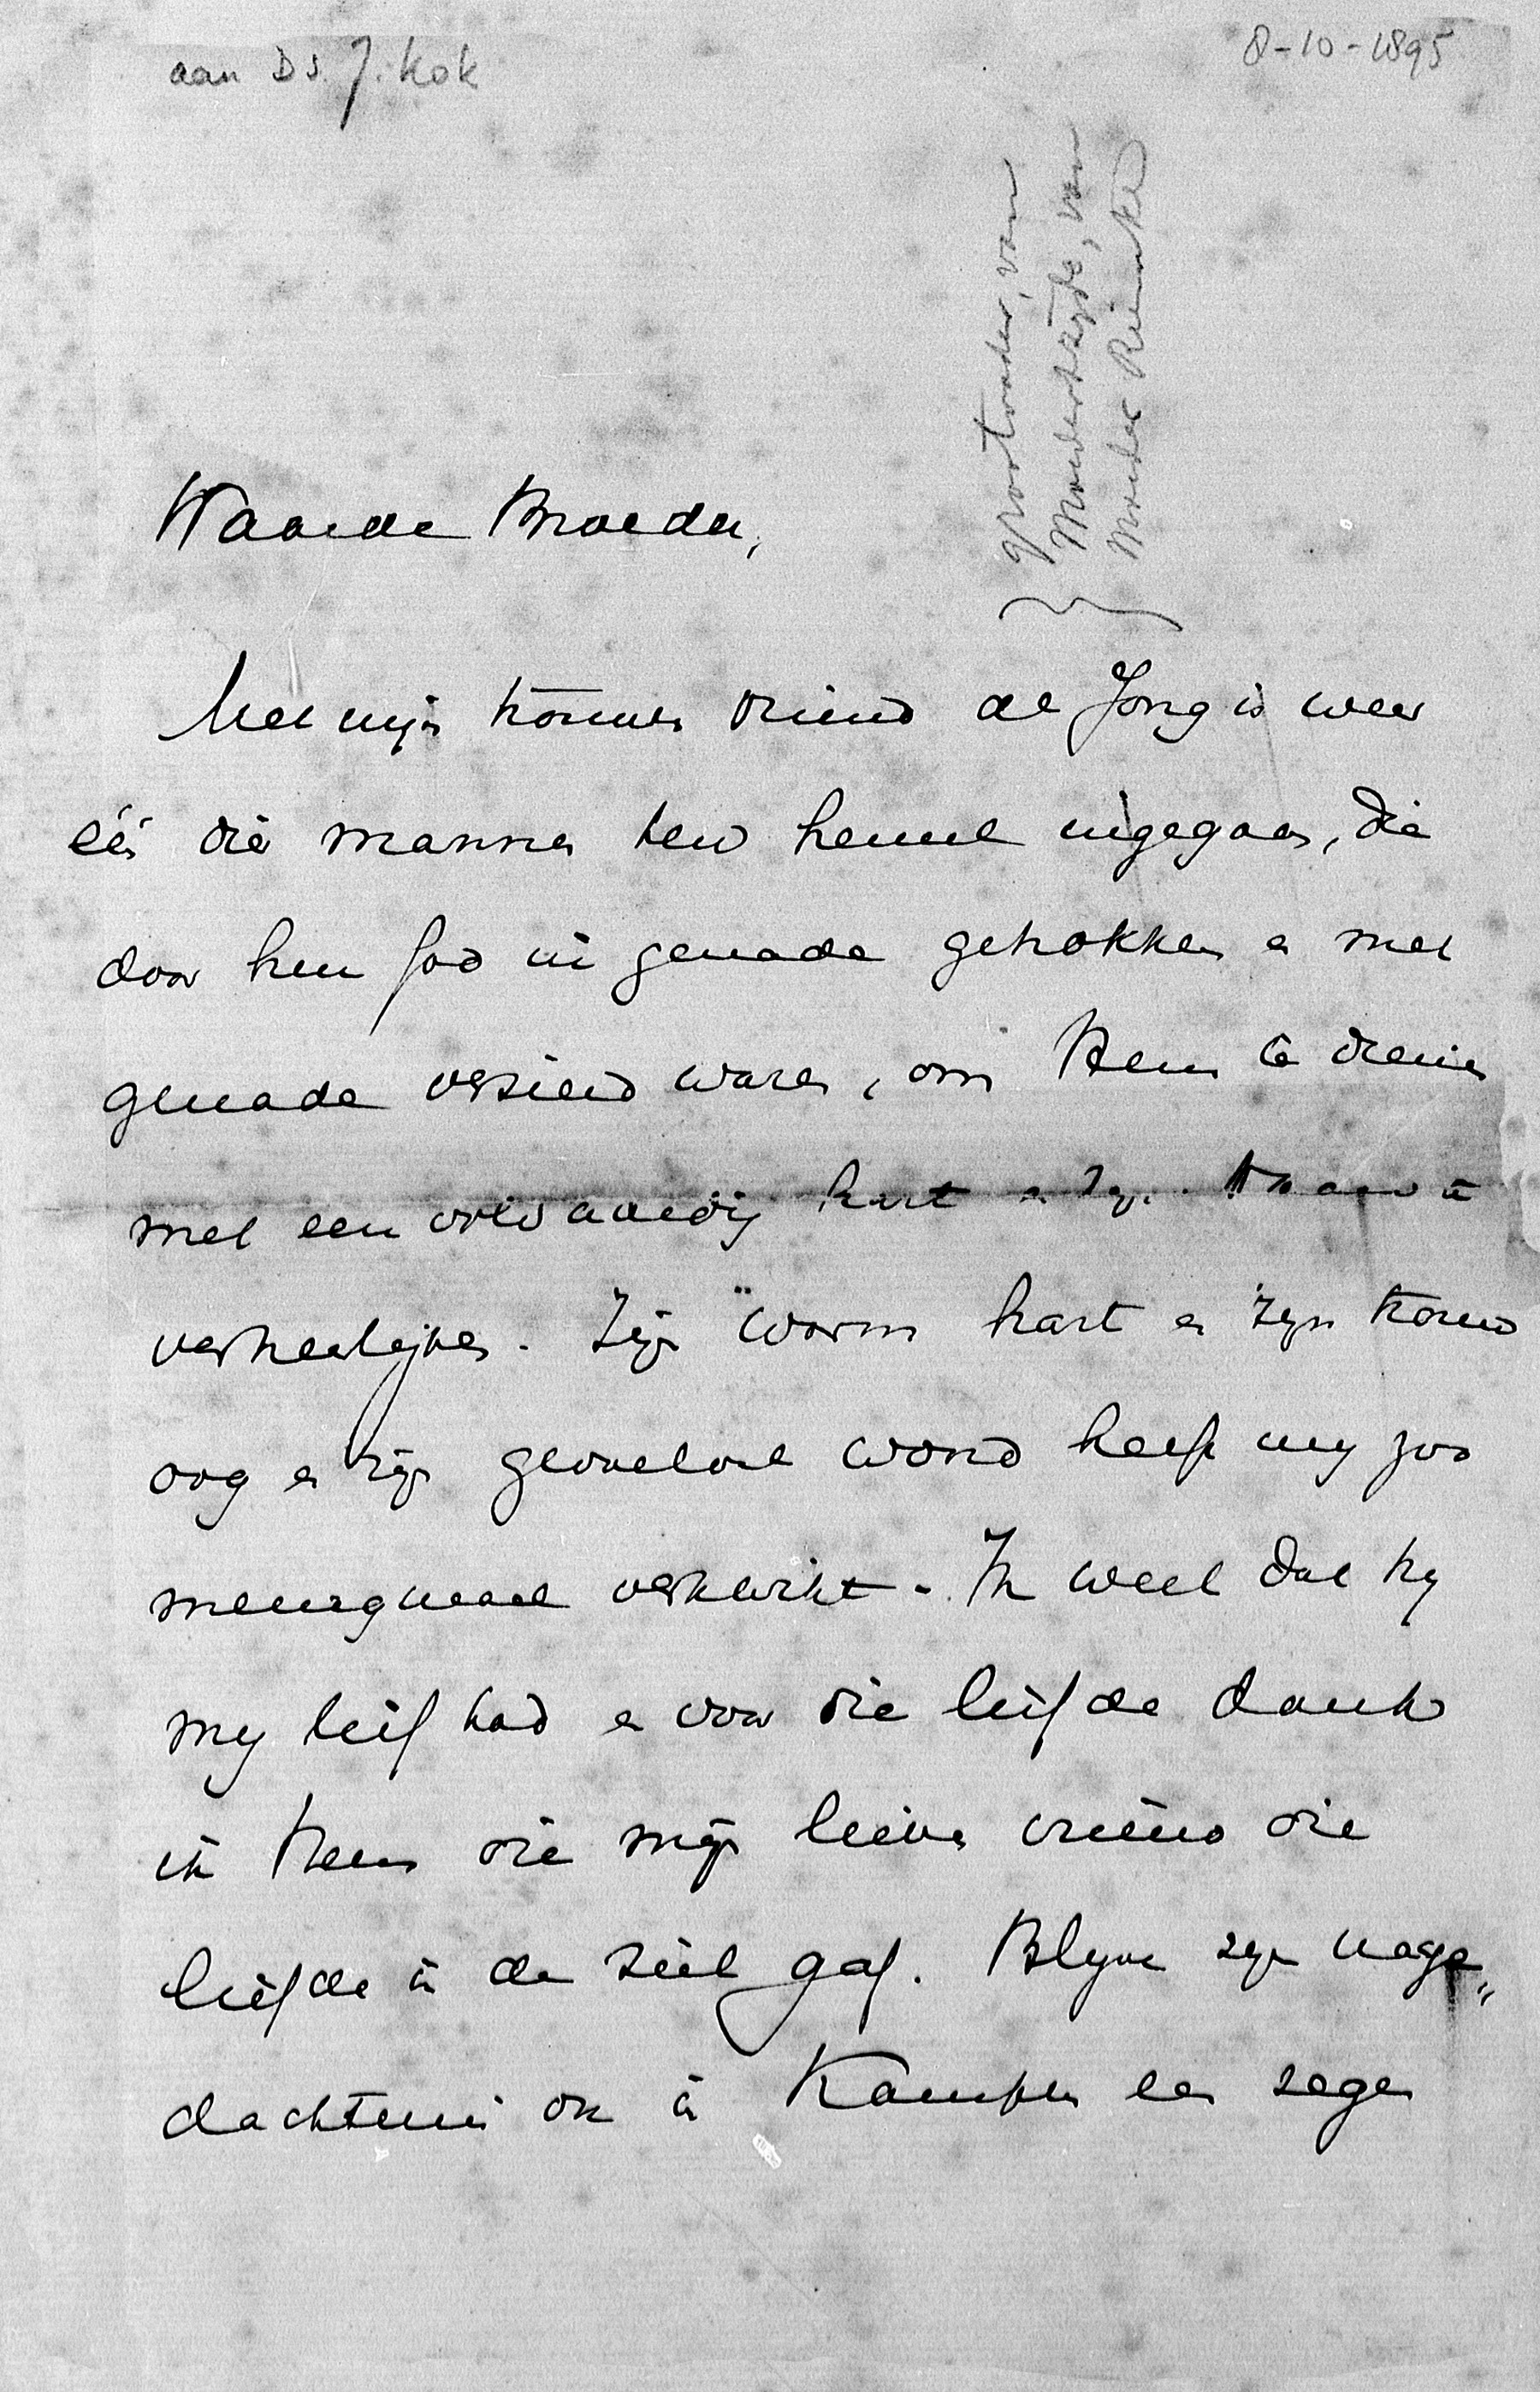 aan Ds. J. Kok
8-10-1895
grootvader, van
Moederszijde, van
Moeder
Waarde Broeder,
Met mijn trouwen vriend de Jong is weer
één dier mannen ten hemel ingegaan, die
door hun God in genade getrokken en met
genade versierd waren, om Hem te dienen
met een volvaardig hart en Zijn Naam te
verheerlijken. Zijn warm hart en zijn trouw
oog en zijn gevoelvol woord heeft mij zoo
menigmaal verkwikt. Ik weet dat hij
mij lief had en voor die liefde dank
ik Hem die mijn lieven vriend die
liefde in de ziel gaf. Blijve zijn nage„
dachtenis ook in Kampen een zegen